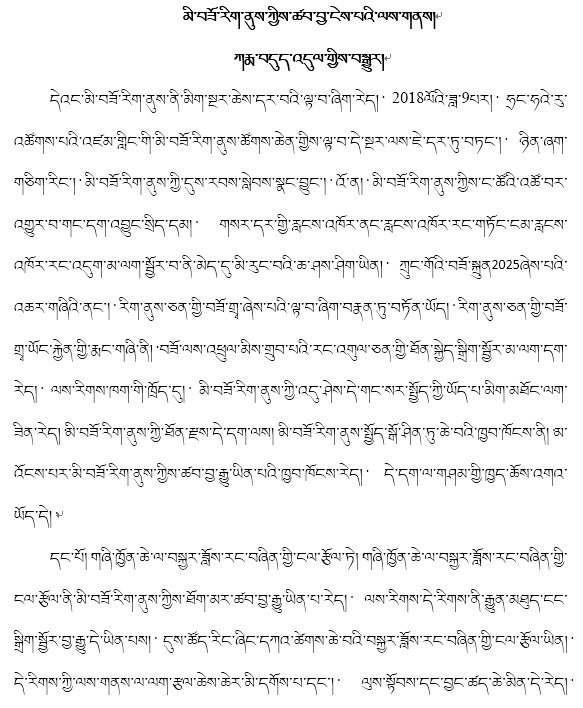 མི་བཟོ་རིག་ནུས་ཀྱིས་ཚབ་བྱ་ངེས་པའི་ལས་གནས།
ཀརྨ་བདུད་འདུལ་གྱིས་བསྒྱུར།
དེའང་མི་བཟོ་རིག་ནུས་ནི་མིག་སྔར་ཆེས་དར་བའི་ལྟ་བ་ཞིག་རེད། 2018ལོའི་ཟླ་9པར། ཧྲང་ཧའེ་རུ་
འཚོགས་པའི་འཛམ་གླིང་གི་མི་བཟོ་རིག་ནུས་ཚོགས་ཆེན་གྱིས་ལྟ་བ་དེ་སྔར་ལས་ཇེ་དར་ཏུ་བཏང་། ཉིན་ཞག་
གཅིག་རིང་། མི་བཟོ་རིག་ནུས་ཀྱི་དུས་རབས་སླེབས་སྣང་བྱུང་། འོ་ན། མི་བཟོ་རིག་ནུས་ཀྱིས་ང་ཚོའི་འཚོ་བར་
འགྱུར་བ་གང་དག་འབྱུང་སྲིད་དམ། གསར་དར་གྱི་རླངས་འཁོར་ནང་རླངས་འཁོར་རང་གཏོང་ངམ་རླངས་
འཁོར་རང་འདུག་མ་ལག་སྦྱོར་བ་ནི་མེད་དུ་མི་རུང་བའི་ཆ་ཤས་ཤིག་ཡིན། ཀྲུང་གོའི་བཟོ་སྐྲུན2025ཞེས་པའི་
འཆར་གཞིའི་ནང་། རིག་ནུས་ཅན་གྱི་བཟོ་གྲྭ་ཞེས་པའི་ལྟ་བ་ཞིག་བརྣན་ཏུ་བཏོན་ཡོད། རིག་ནུས་ཅན་གྱི་བཟོ་
གྲྭ་ཡོང་རྐྱེན་གྱི་རྨང་གཞི་ནི། བཟོ་ལས་འཕྲུལ་མིས་གྲུབ་པའི་རང་འགུལ་ཅན་གྱི་ཐོན་སྐྱེད་སྒྲིག་སྦྱོར་མ་ལག་དག་
རེད། ལས་རིགས་ཁག་གི་ཁྲོད་དུ། མི་བཟོ་རིག་ནུས་ཀྱི་འདུ་ཤེས་དེ་གང་སར་སྤྱོད་ཀྱི་ཡོད་པ་མིག་མཐོང་ལག་
ཟིན་རེད། མི་བཟོ་རིག་ནུས་ཀྱི་ཐོན་རྫས་དེ་དག་ལས། མི་བཟོ་རིག་ནུས་སྤྱོད་སྒོ་ཤིན་ཏུ་ཆེ་བའི་ཁྱབ་ཁོངས་ནི། མ་
འོངས་པར་མི་བཟོ་རིག་ནུས་ཀྱིས་ཚབ་བྱ་རྒྱུ་ཡིན་པའི་ཁྱབ་ཁོངས་རེད། དེ་དག་ལ་གཤམ་གྱི་ཁྱད་ཆོས་འགའ་
ཡོད་དེ།
དང་པོ། གཞི་ཁྱོན་ཆེ་ལ་བསྐྱར་ཟློས་རང་བཞིན་གྱི་ངལ་རྩོལ་ཏེ། གཞི་ཁྱོན་ཆེ་ལ་བསྐྱར་ཟློས་རང་བཞིན་གྱི་
ངལ་རྩོལ་ནི་མི་བཟོ་རིག་ནུས་ཀྱིས་ཐོག་མར་ཚབ་བྱ་རྒྱུ་ཡིན་པ་རེད། ལས་རིགས་དེ་རིགས་ནི་རྒྱུན་མཐུད་ངང་
སྒྲིག་སྦྱོར་བྱ་རྒྱུ་དེ་ཡིན་པས། དུས་ཚོད་རིང་ཞིང་དཀའ་ཚེགས་ཆེ་བའི་བསྐྱར་ཟློས་རང་བཞིན་གྱི་ངལ་རྩོལ་ཡིན།
དེ་རིགས་ཀྱི་ལས་གནས་ལ་ལག་རྩལ་ཆེས་ཆེར་མི་དགོས་པ་དང་། ལུས་སྟོབས་དང་བྱང་ཚད་ཆེ་མིན་དེ་རེད།